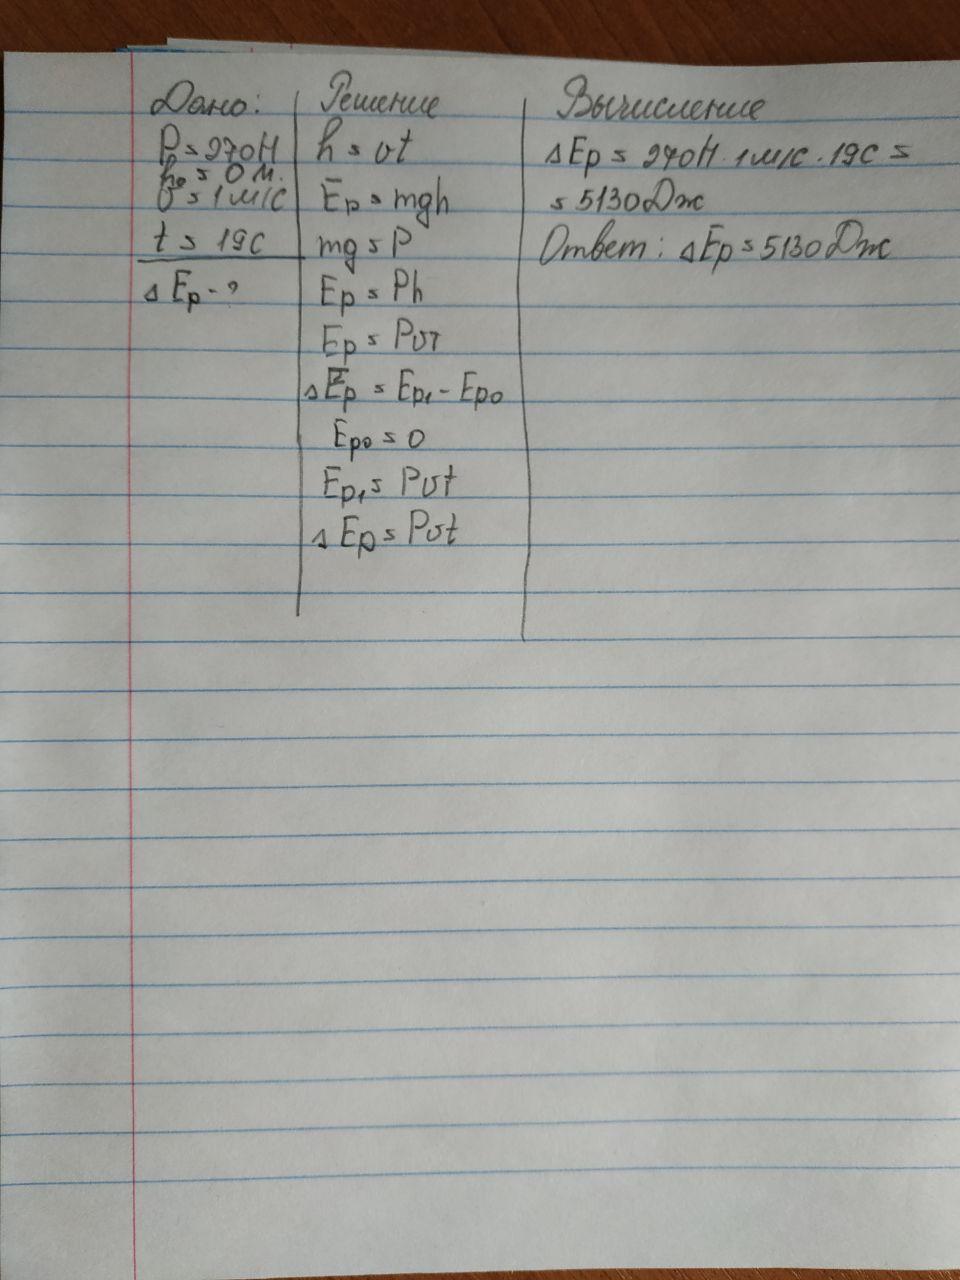 Дано:
P = 270Н
h₀ = 0 м.
υ = 1 м/с
t = 19с
ΔEp - ?
Решение
h = υt
Ep = mgh
mg = P
Ep = Ph
Ep = Pυт
ΔEp = Ep₁ - Ep₀
Ep₀ = 0
Ep₁ = Pυt
ΔEp = Pυt
Вычисление
ΔEp = 270Н · 1м/с · 19с =
= 5130Дж
Ответ: ΔEp = 5130Дж